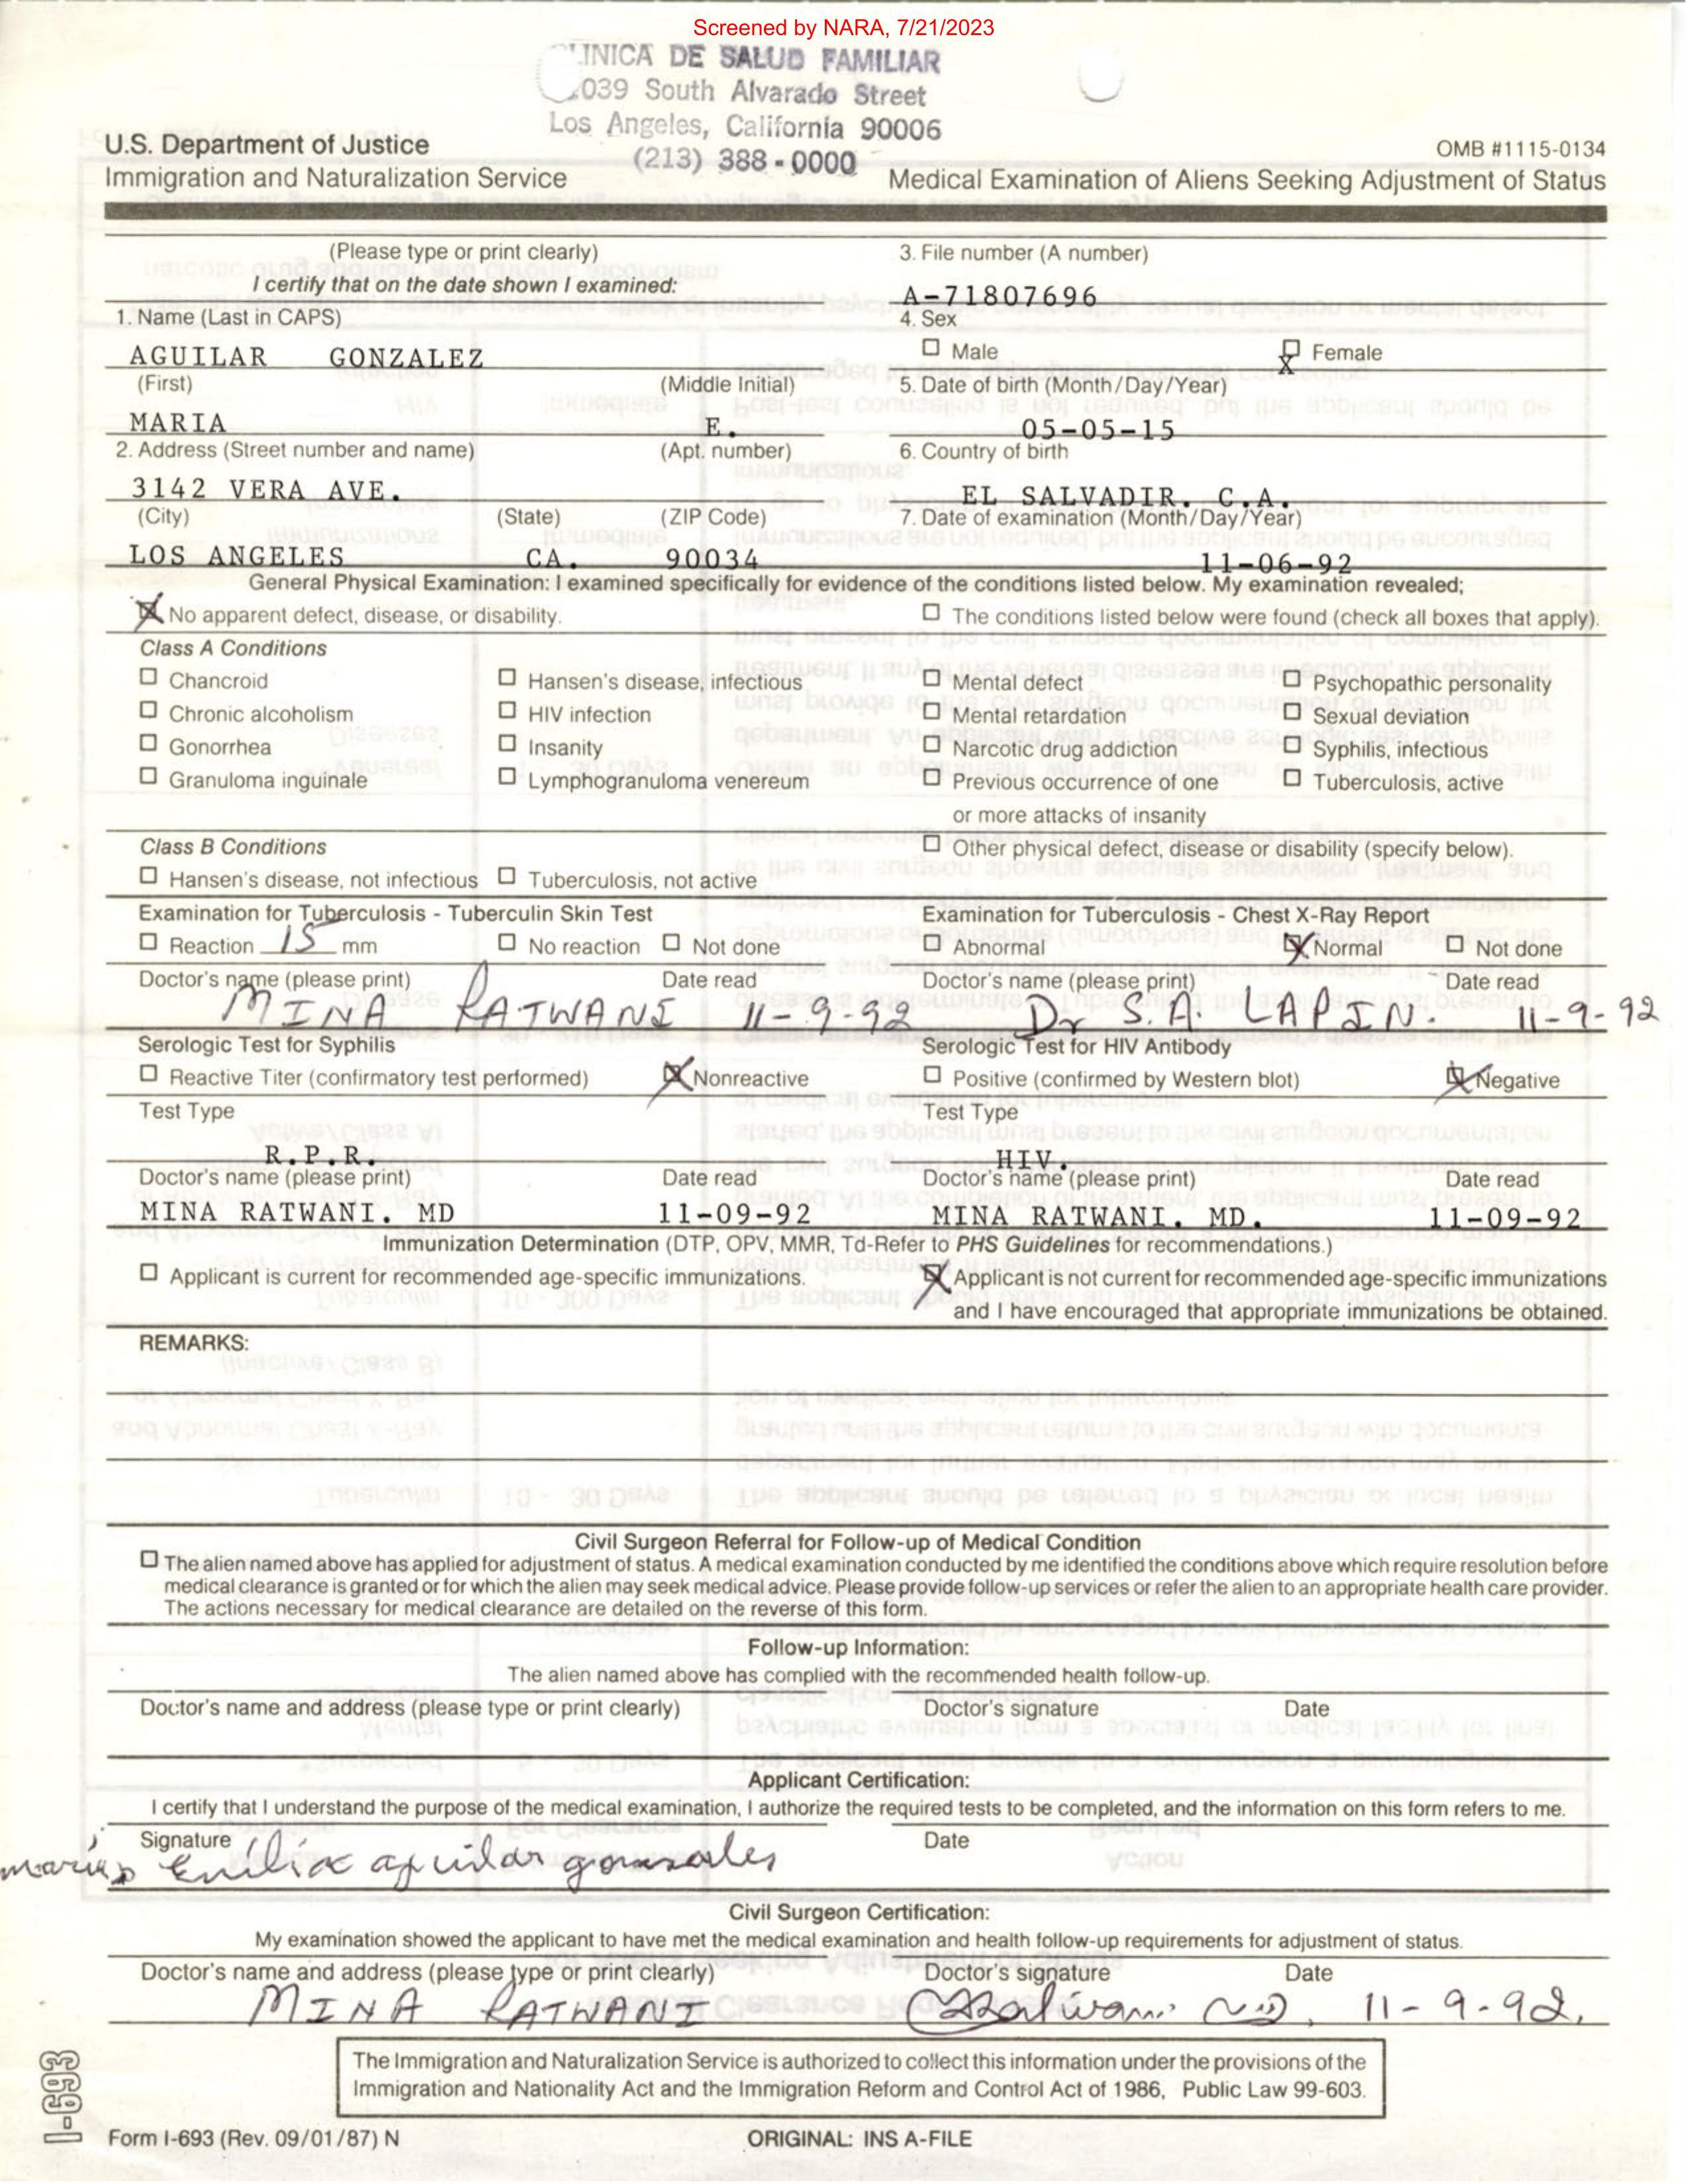 Screened by NARA, 7/21/2023
INICA DE SALUD FAMILIAR
039 South Alvarado Street
Los Angeles, California 90006
(213) 388-0000
U.S. Department of Justice
Immigration and Naturalization Service
OMB #1115-0134
Medical Examination of Aliens Seeking Adjustment of Status
(Please type or print clearly)
I certify that on the date shown I examined:
3. File number (A number)
A-71807696
1. Name (Last in CAPS)
AGUILAR GONZALEZ
4. Sex
☐ Male ☒ Female
(First) (Middle Initial)
MARIA E.
5. Date of birth (Month/Day/Year)
05-05-15
2. Address (Street number and name) (Apt. number)
3142 VERA AVE.
6. Country of birth
EL SALVADIR. C.A.
(City) (State) (ZIP Code)
LOS ANGELES CA. 90034
7. Date of examination (Month/Day/Year)
11-06-92
General Physical Examination: I examined specifically for evidence of the conditions listed below. My examination revealed;
☒ No apparent defect, disease, or disability. ☐ The conditions listed below were found (check all boxes that apply).
Class A Conditions
☐ Chancroid ☐ Hansen's disease, infectious ☐ Mental defect ☐ Psychopathic personality
☐ Chronic alcoholism ☐ HIV infection ☐ Mental retardation ☐ Sexual deviation
☐ Gonorrhea ☐ Insanity ☐ Narcotic drug addiction ☐ Syphilis, infectious
☐ Granuloma inguinale ☐ Lymphogranuloma venereum ☐ Previous occurrence of one ☐ Tuberculosis, active
or more attacks of insanity
Class B Conditions
☐ Other physical defect, disease or disability (specify below).
☐ Hansen's disease, not infectious ☐ Tuberculosis, not active
Examination for Tuberculosis - Tuberculin Skin Test
☐ Reaction 15 mm ☐ No reaction ☐ Not done
Doctor's name (please print) Date read
MINA RATWANI 11-9-92
Examination for Tuberculosis - Chest X-Ray Report
☐ Abnormal ☒ Normal ☐ Not done
Doctor's name (please print) Date read
Dr S.A. LAPIN. 11-9-92
Serologic Test for Syphilis
☐ Reactive Titer (confirmatory test performed) ☒ Nonreactive
Test Type
R.P.R.
Doctor's name (please print) Date read
MINA RATWANI. MD 11-09-92
Serologic Test for HIV Antibody
☐ Positive (confirmed by Western blot) ☒ Negative
Test Type
HIV.
Doctor's name (please print) Date read
MINA RATWANI. MD. 11-09-92
Immunization Determination (DTP, OPV, MMR, Td-Refer to PHS Guidelines for recommendations.)
☐ Applicant is current for recommended age-specific immunizations.
☒ Applicant is not current for recommended age-specific immunizations
and I have encouraged that appropriate immunizations be obtained.
REMARKS:
Civil Surgeon Referral for Follow-up of Medical Condition
☐ The alien named above has applied for adjustment of status. A medical examination conducted by me identified the conditions above which require resolution before
medical clearance is granted or for which the alien may seek medical advice. Please provide follow-up services or refer the alien to an appropriate health care provider.
The actions necessary for medical clearance are detailed on the reverse of this form.
Follow-up Information:
The alien named above has complied with the recommended health follow-up.
Doctor's name and address (please type or print clearly) Doctor's signature Date
Applicant Certification:
I certify that I understand the purpose of the medical examination, I authorize the required tests to be completed, and the information on this form refers to me.
Signature Date
maria Emilia aguilar gonsales
Civil Surgeon Certification:
My examination showed the applicant to have met the medical examination and health follow-up requirements for adjustment of status.
Doctor's name and address (please type or print clearly) Doctor's signature Date
MINA RATWANI Ratwani MD, 11-9-92.
The Immigration and Naturalization Service is authorized to collect this information under the provisions of the
Immigration and Nationality Act and the Immigration Reform and Control Act of 1986, Public Law 99-603.
I-693
Form I-693 (Rev. 09/01/87) N
ORIGINAL: INS A-FILE